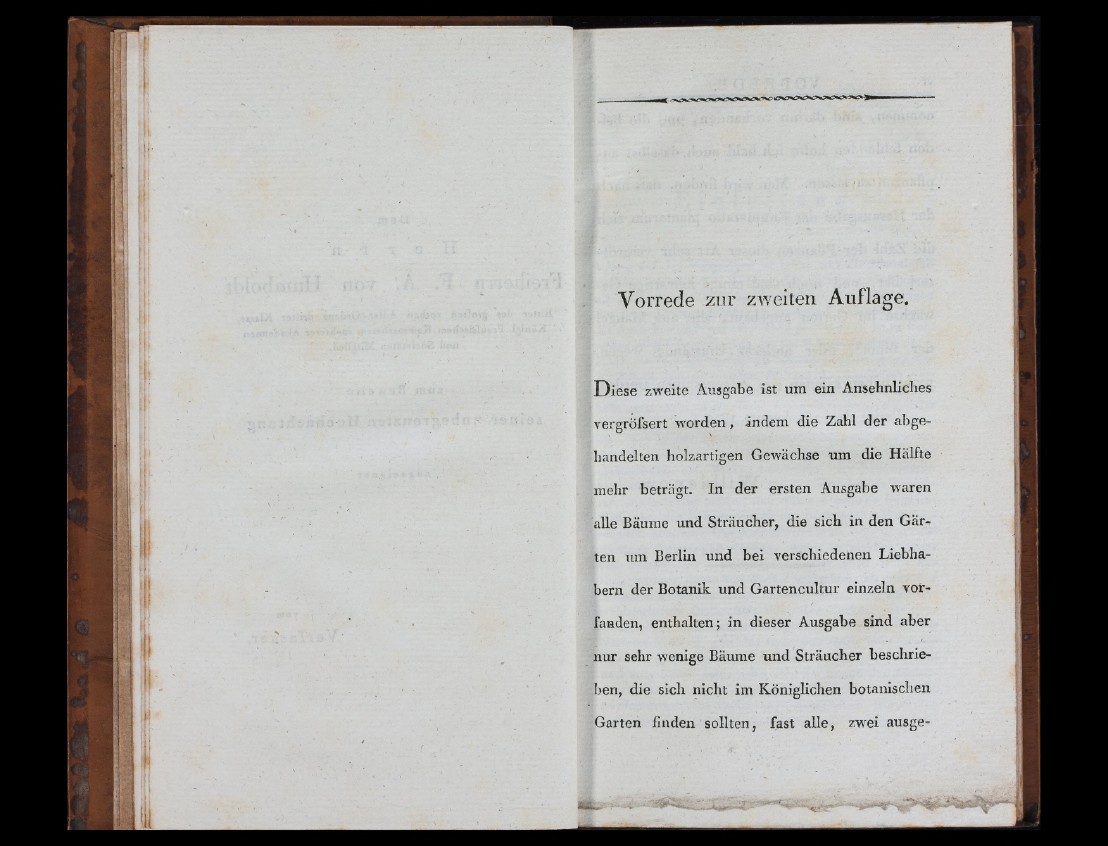 Vorrede zur zweiten Auflage.
Diese zweite Ausgabe ist um ein Ansehnliches
vergröſsert worden, indem die Zahl der abge-
handelten holzartigen Gewächse um die Hälfte
mehr beträgt. In der ersten Ausgabe waren
alle Bäume und Sträucher, die sich in den Gär-
ten um Berlin und bei verschiedenen Liebha-
bern der Botanik und Gartencultur einzeln vor-
fanden, enthalten; in dieser Ausgabe sind aber
nur sehr wenige Bäume und Sträucher beschrie-
ben, die sich nicht im Königlichen botanischen
Garten finden sollten, fast alle, zwei ausge-